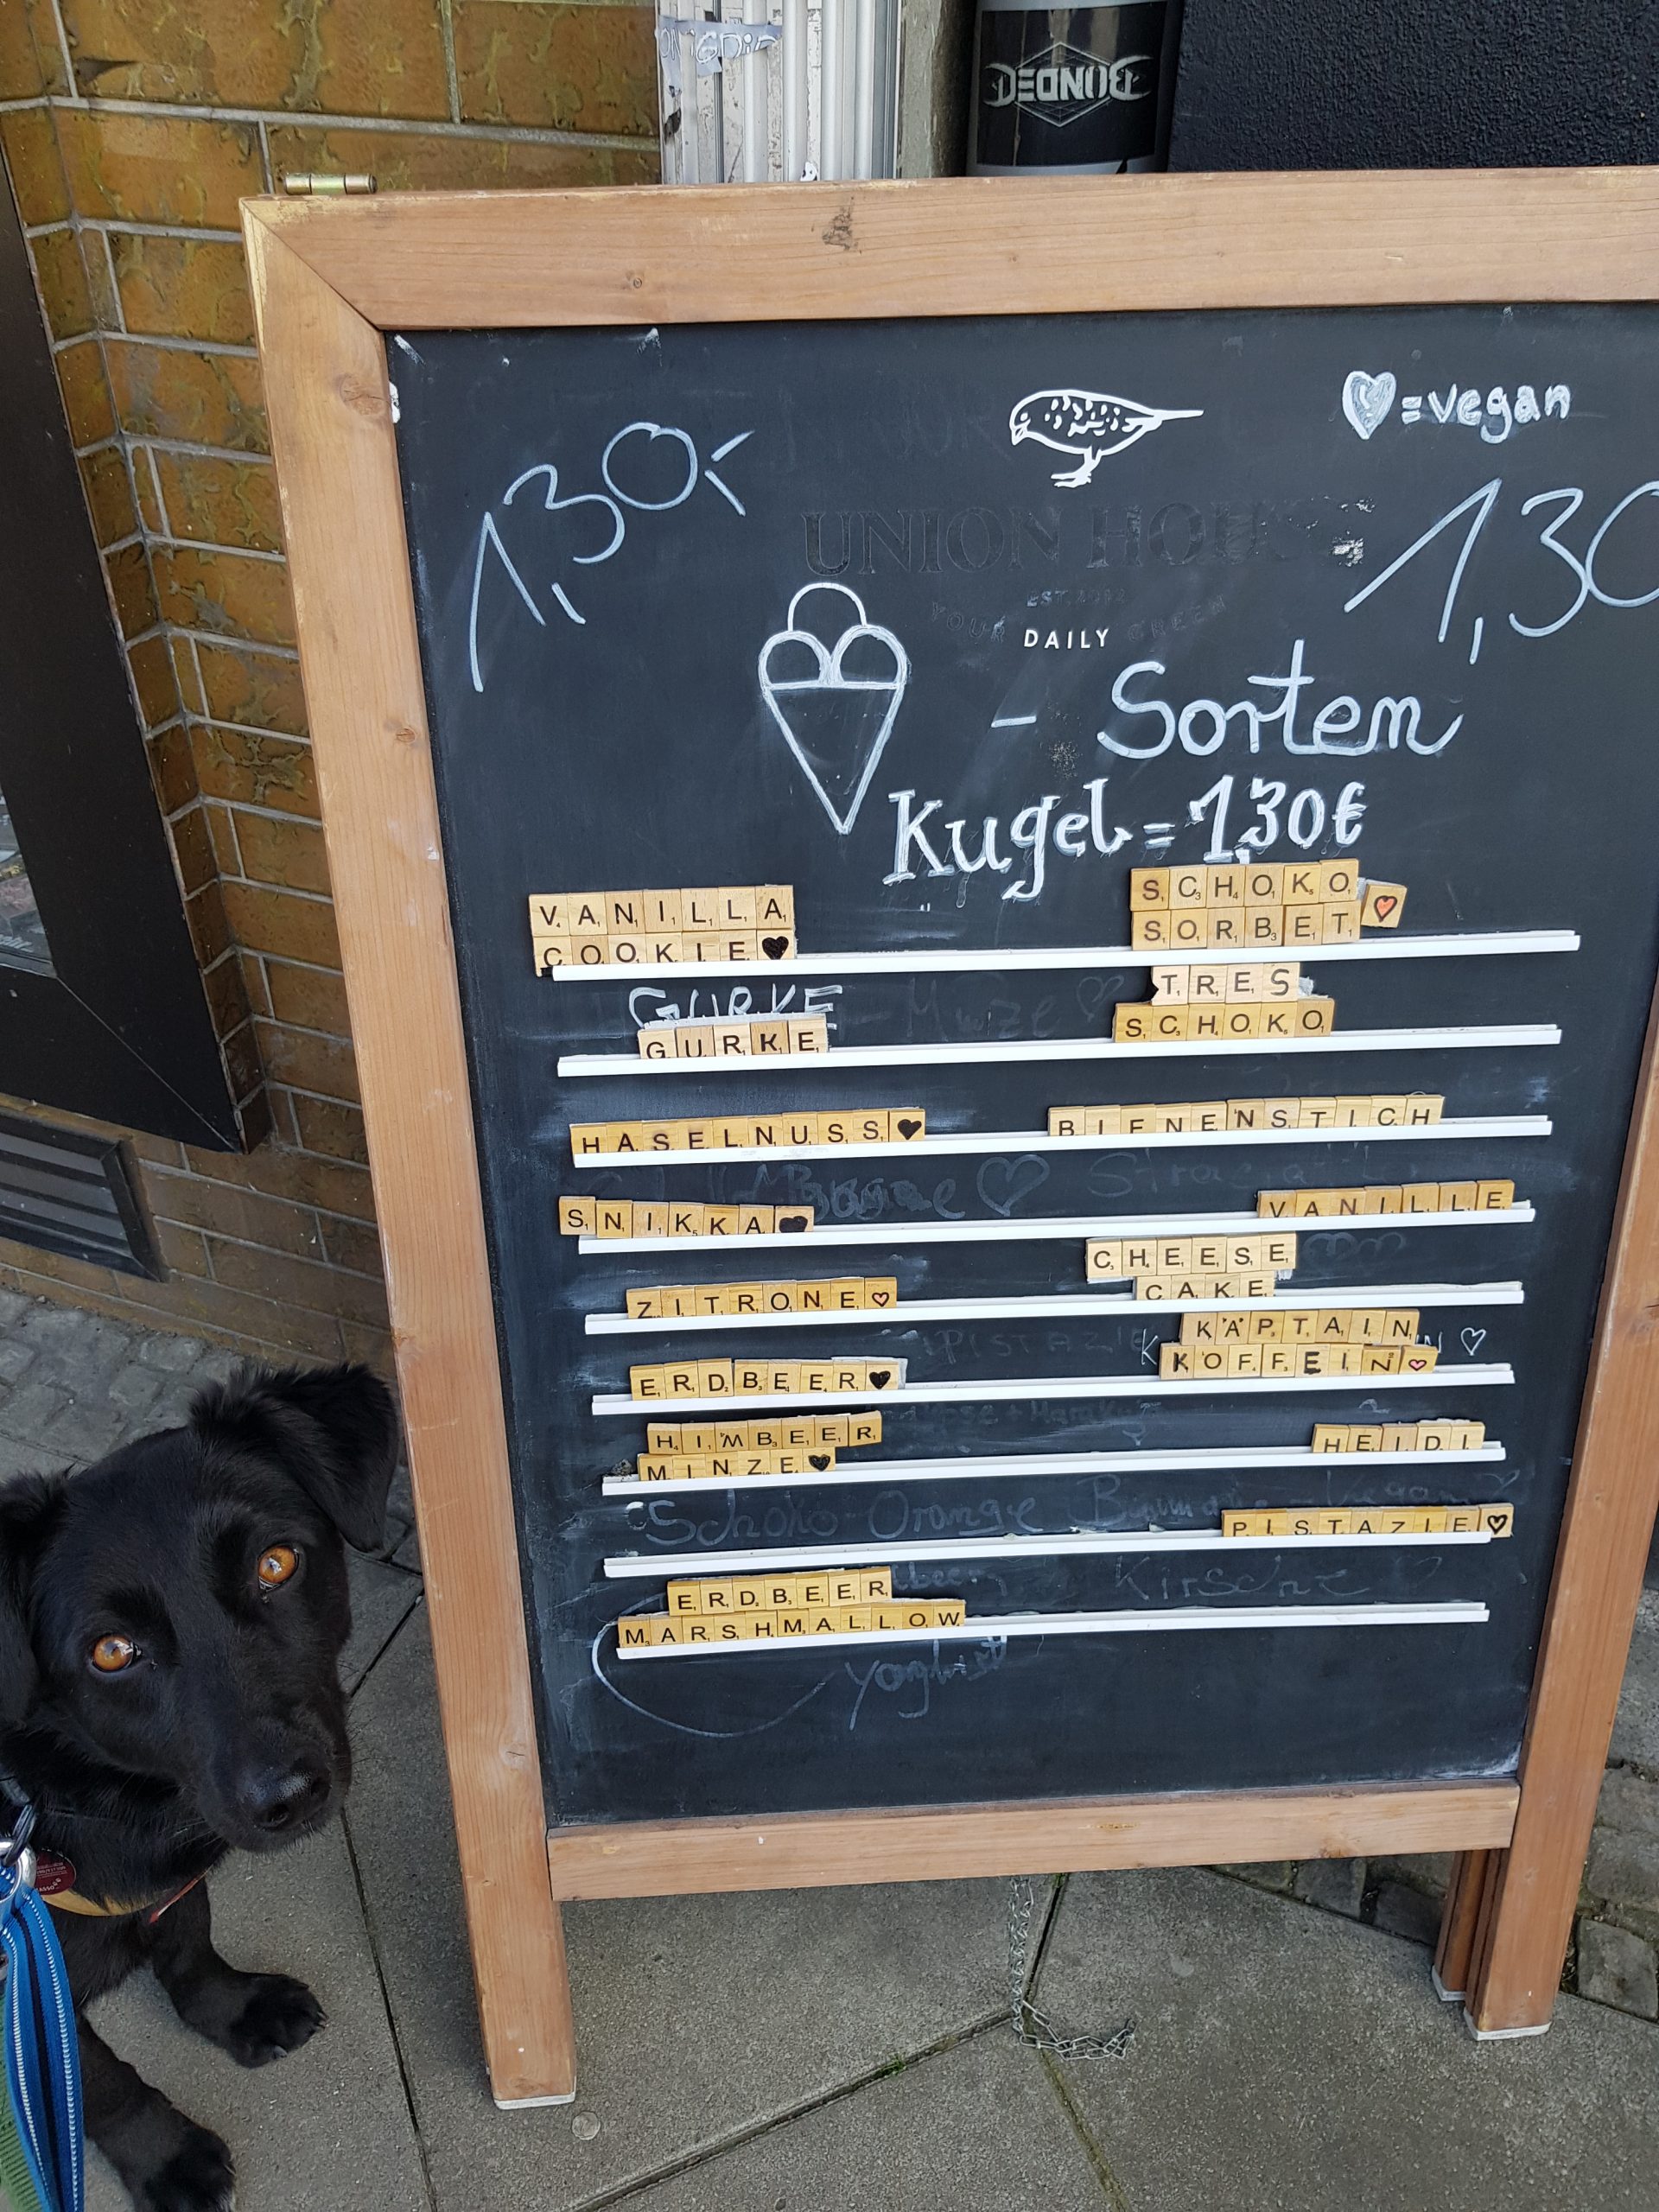 ♥=vegan
1,30
1,30
UNION HOUSE
YOUR DAILY GREEN
- Sorten
Kugel=1,30€
VANILLA
COOKIE♥
SCHOKO
SORBET♥
GURKE
GURKE
TRES
SCHOKO
HASELNUSS♥
BIENENSTICH
SNIKKA♥
VANILLE
ZITRONE♥
CHEESE
CAKE
ERDBEER♥
KÄPTAIN
KOFFEIN♥
HIMBEER
MINZE♥
HEIDI
Schoko-Orange
PISTAZIE♥
Kirsche
ERDBEER
MARSHMALLOW